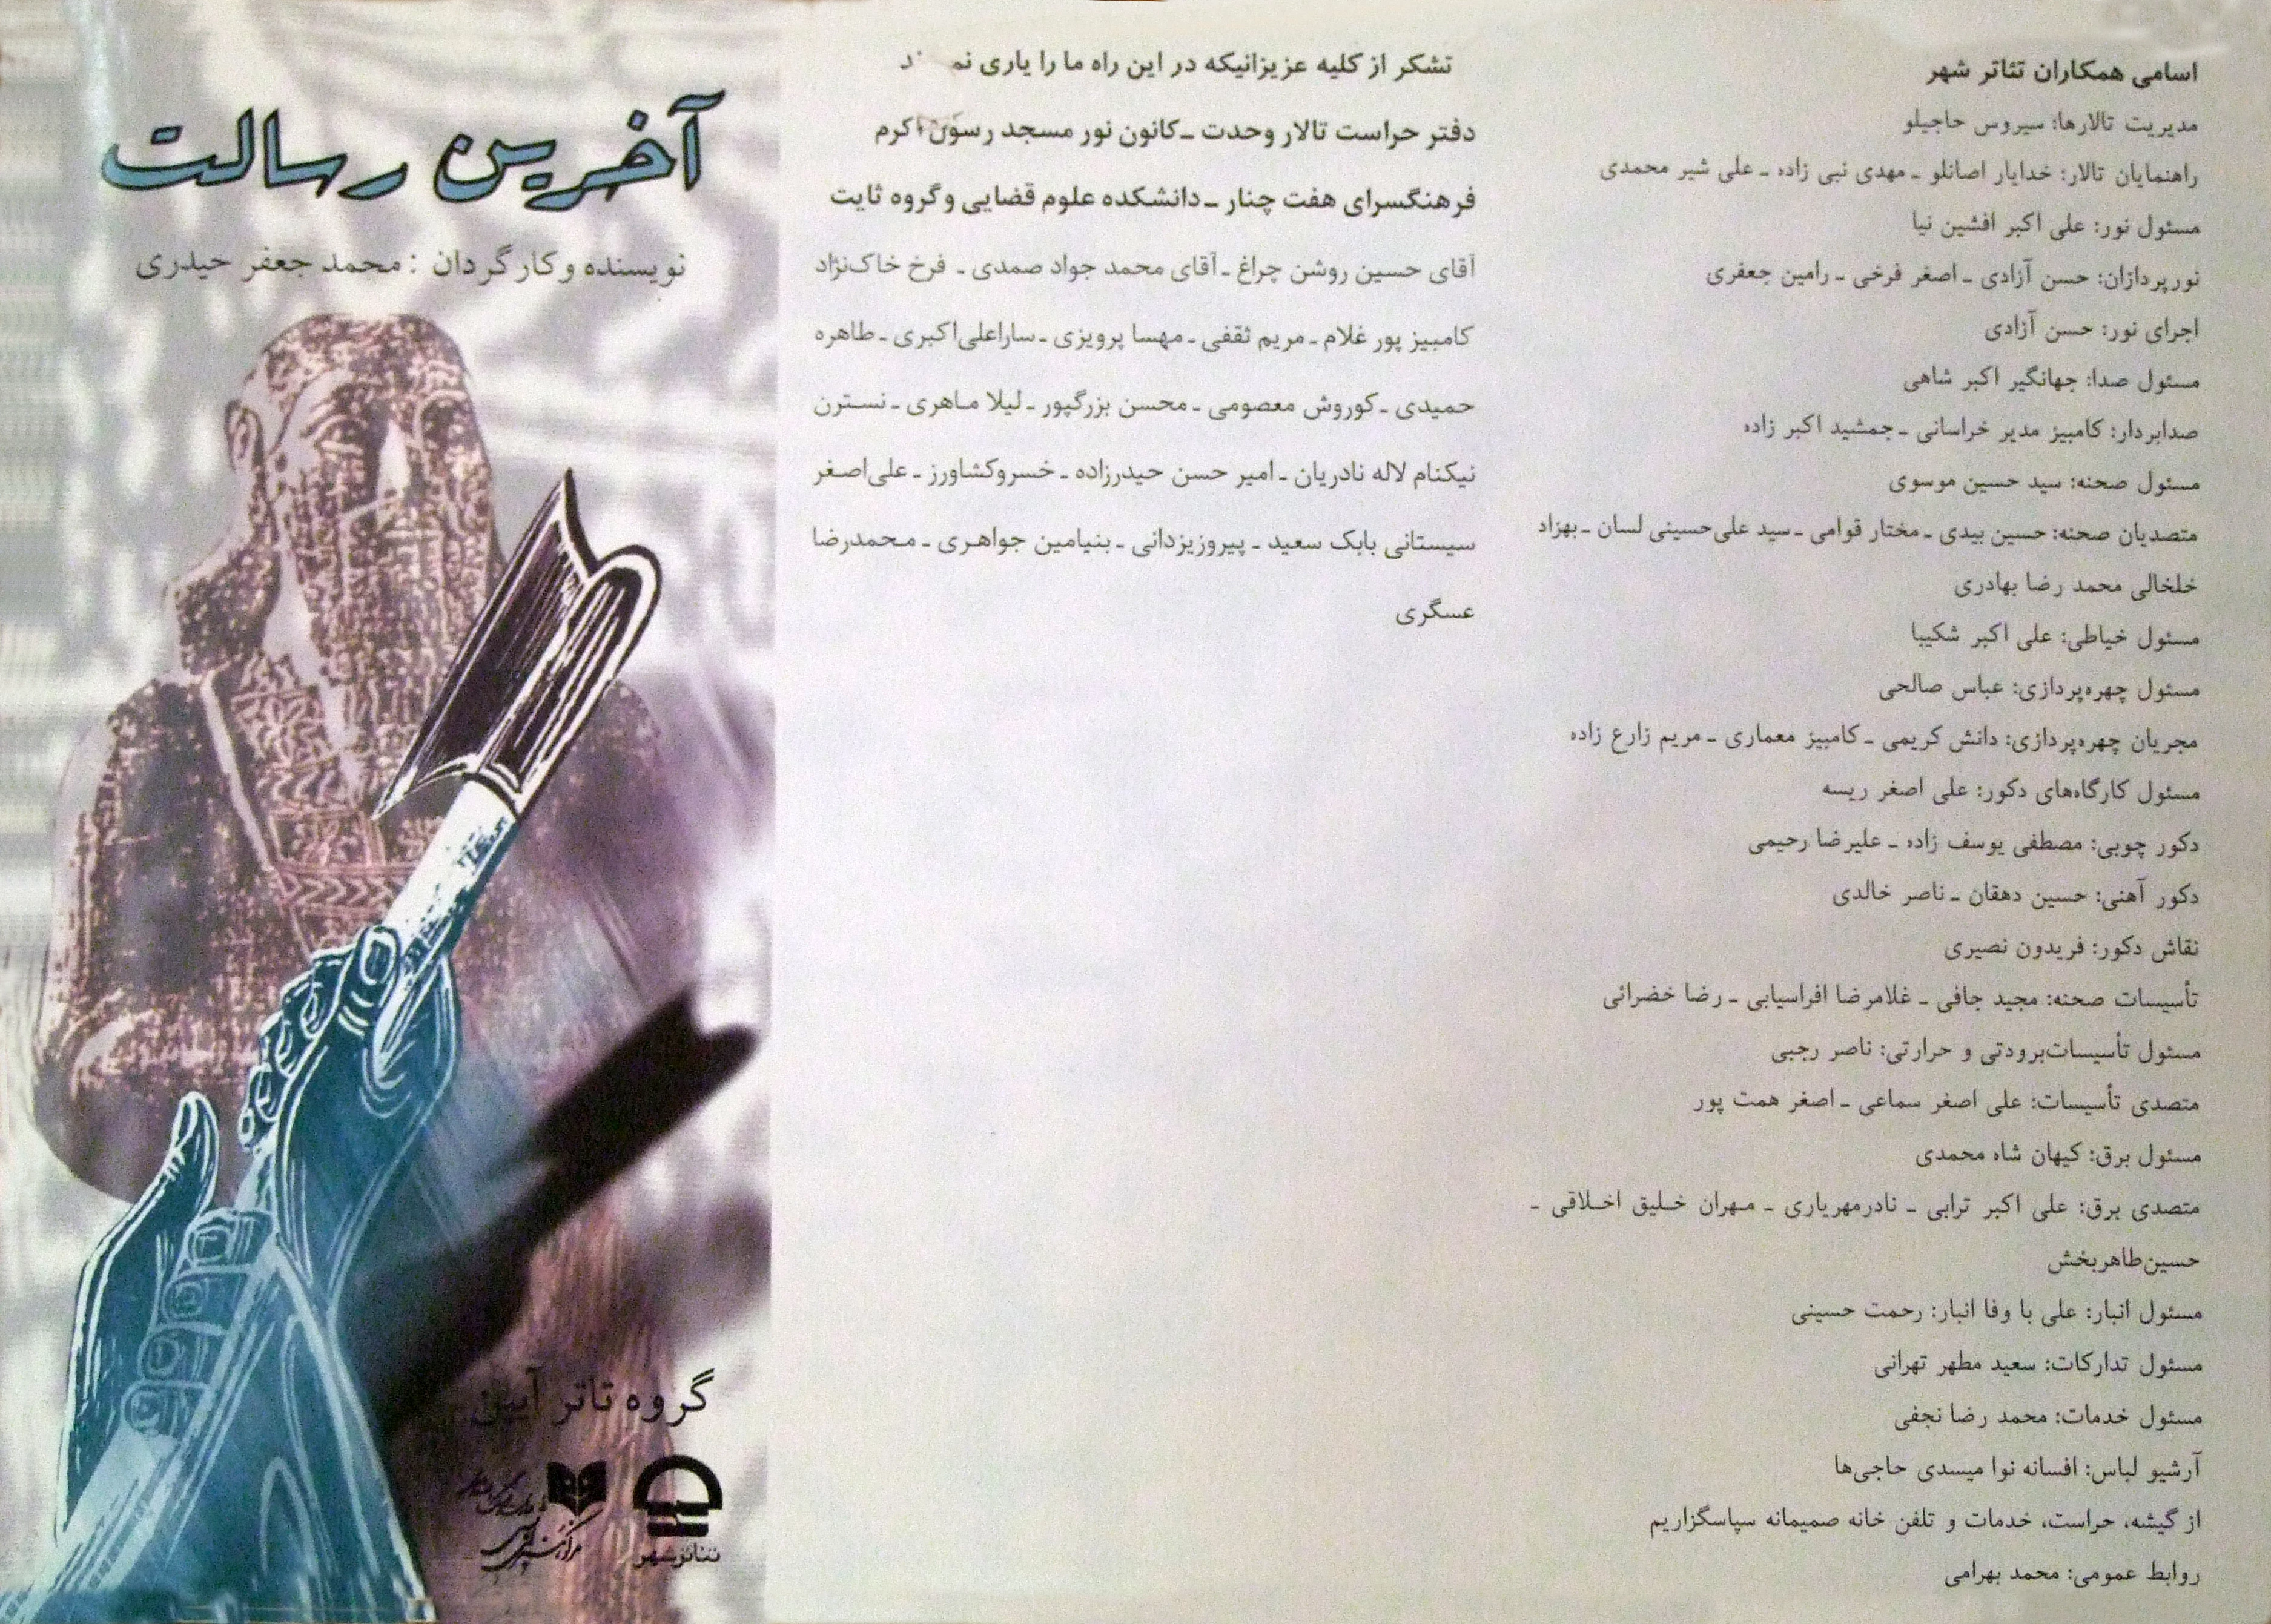 اسامی همکاران تئاتر شهر
مدیریت تالارها: سیروس حاجیلو
راهنمایان تالار: خدایار اصانلو ـ مهدی نبی زاده ـ علی شیر محمدی
مسئول نور: علی اکبر افشین نیا
نورپردازان: حسن آزادی ـ اصغر فرخی ـ رامین جعفری
اجرای نور: حسن آزادی
مسئول صدا: جهانگیر اکبر شاهی
صدابردار: کامبیز مدیر خراسانی ـ جمشید اکبر زاده
مسئول صحنه: سید حسین موسوی
متصدیان صحنه: حسین بیدی ـ مختار قوامی ـ سید علی‌حسینی لسان ـ بهزاد
خلخالی محمد رضا بهادری
مسئول خیاطی: علی اکبر شکیبا
مسئول چهره‌پردازی: عباس صالحی
مجریان چهره‌پردازی: دانش کریمی ـ کامبیز معماری ـ مریم زارع زاده
مسئول کارگاه‌های دکور: علی اصغر ریسه
دکور چوبی: مصطفی یوسف زاده ـ علیرضا رحیمی
دکور آهنی: حسین دهقان ـ ناصر خالدی
نقاش دکور: فریدون نصیری
تأسیسات صحنه: مجید جافی ـ غلامرضا افراسیابی ـ رضا خضرائی
مسئول تأسیسات‌برودتی و حرارتی: ناصر رجبی
متصدی تأسیسات: علی اصغر سماعی ـ اصغر همت پور
مسئول برق: کیهان شاه محمدی
متصدی برق: علی اکبر ترابی ـ نادرمهریاری ـ مهران خلیق اخلاقی ـ
حسین‌طاهربخش
مسئول انبار: علی با وفا انبار: رحمت حسینی
مسئول تدارکات: سعید مطهر تهرانی
مسئول خدمات: محمد رضا نجفی
آرشیو لباس: افسانه نوا میسدی حاجی‌ها
از گیشه، حراست، خدمات و تلفن خانه صمیمانه سپاسگزاریم
روابط عمومی: محمد بهرامی
تشکر از کلیه عزیزانیکه در این راه ما را یاری
دفتر حراست تالار وحدت ـ کانون نور مسجد رسول اکرم
فرهنگسرای هفت چنار ـ دانشکده علوم قضایی و گروه ثایت
آقای حسین روشن چراغ ـ آقای محمد جواد صمدی ـ فرخ خاک‌نژاد
کامبیز پور غلام ـ مریم ثقفی ـ مهسا پرویزی ـ ساراعلی‌اکبری ـ طاهره
حمیدی ـ کوروش معصومی ـ محسن بزرگپور ـ لیلا ماهری ـ نسترن
نیکنام لاله نادریان ـ امیر حسن حیدرزاده ـ خسروکشاورز ـ علی‌اصغر
سیستانی بابک سعید ـ پیروزیزدانی ـ بنیامین جواهری ـ محمدرضا
عسگری
آخرین رسالت
نویسنده و کارگردان : محمد جعفر حیدری
گروه تاتر آیین
تئاترشهر
مرکز هنرهای نمایشی